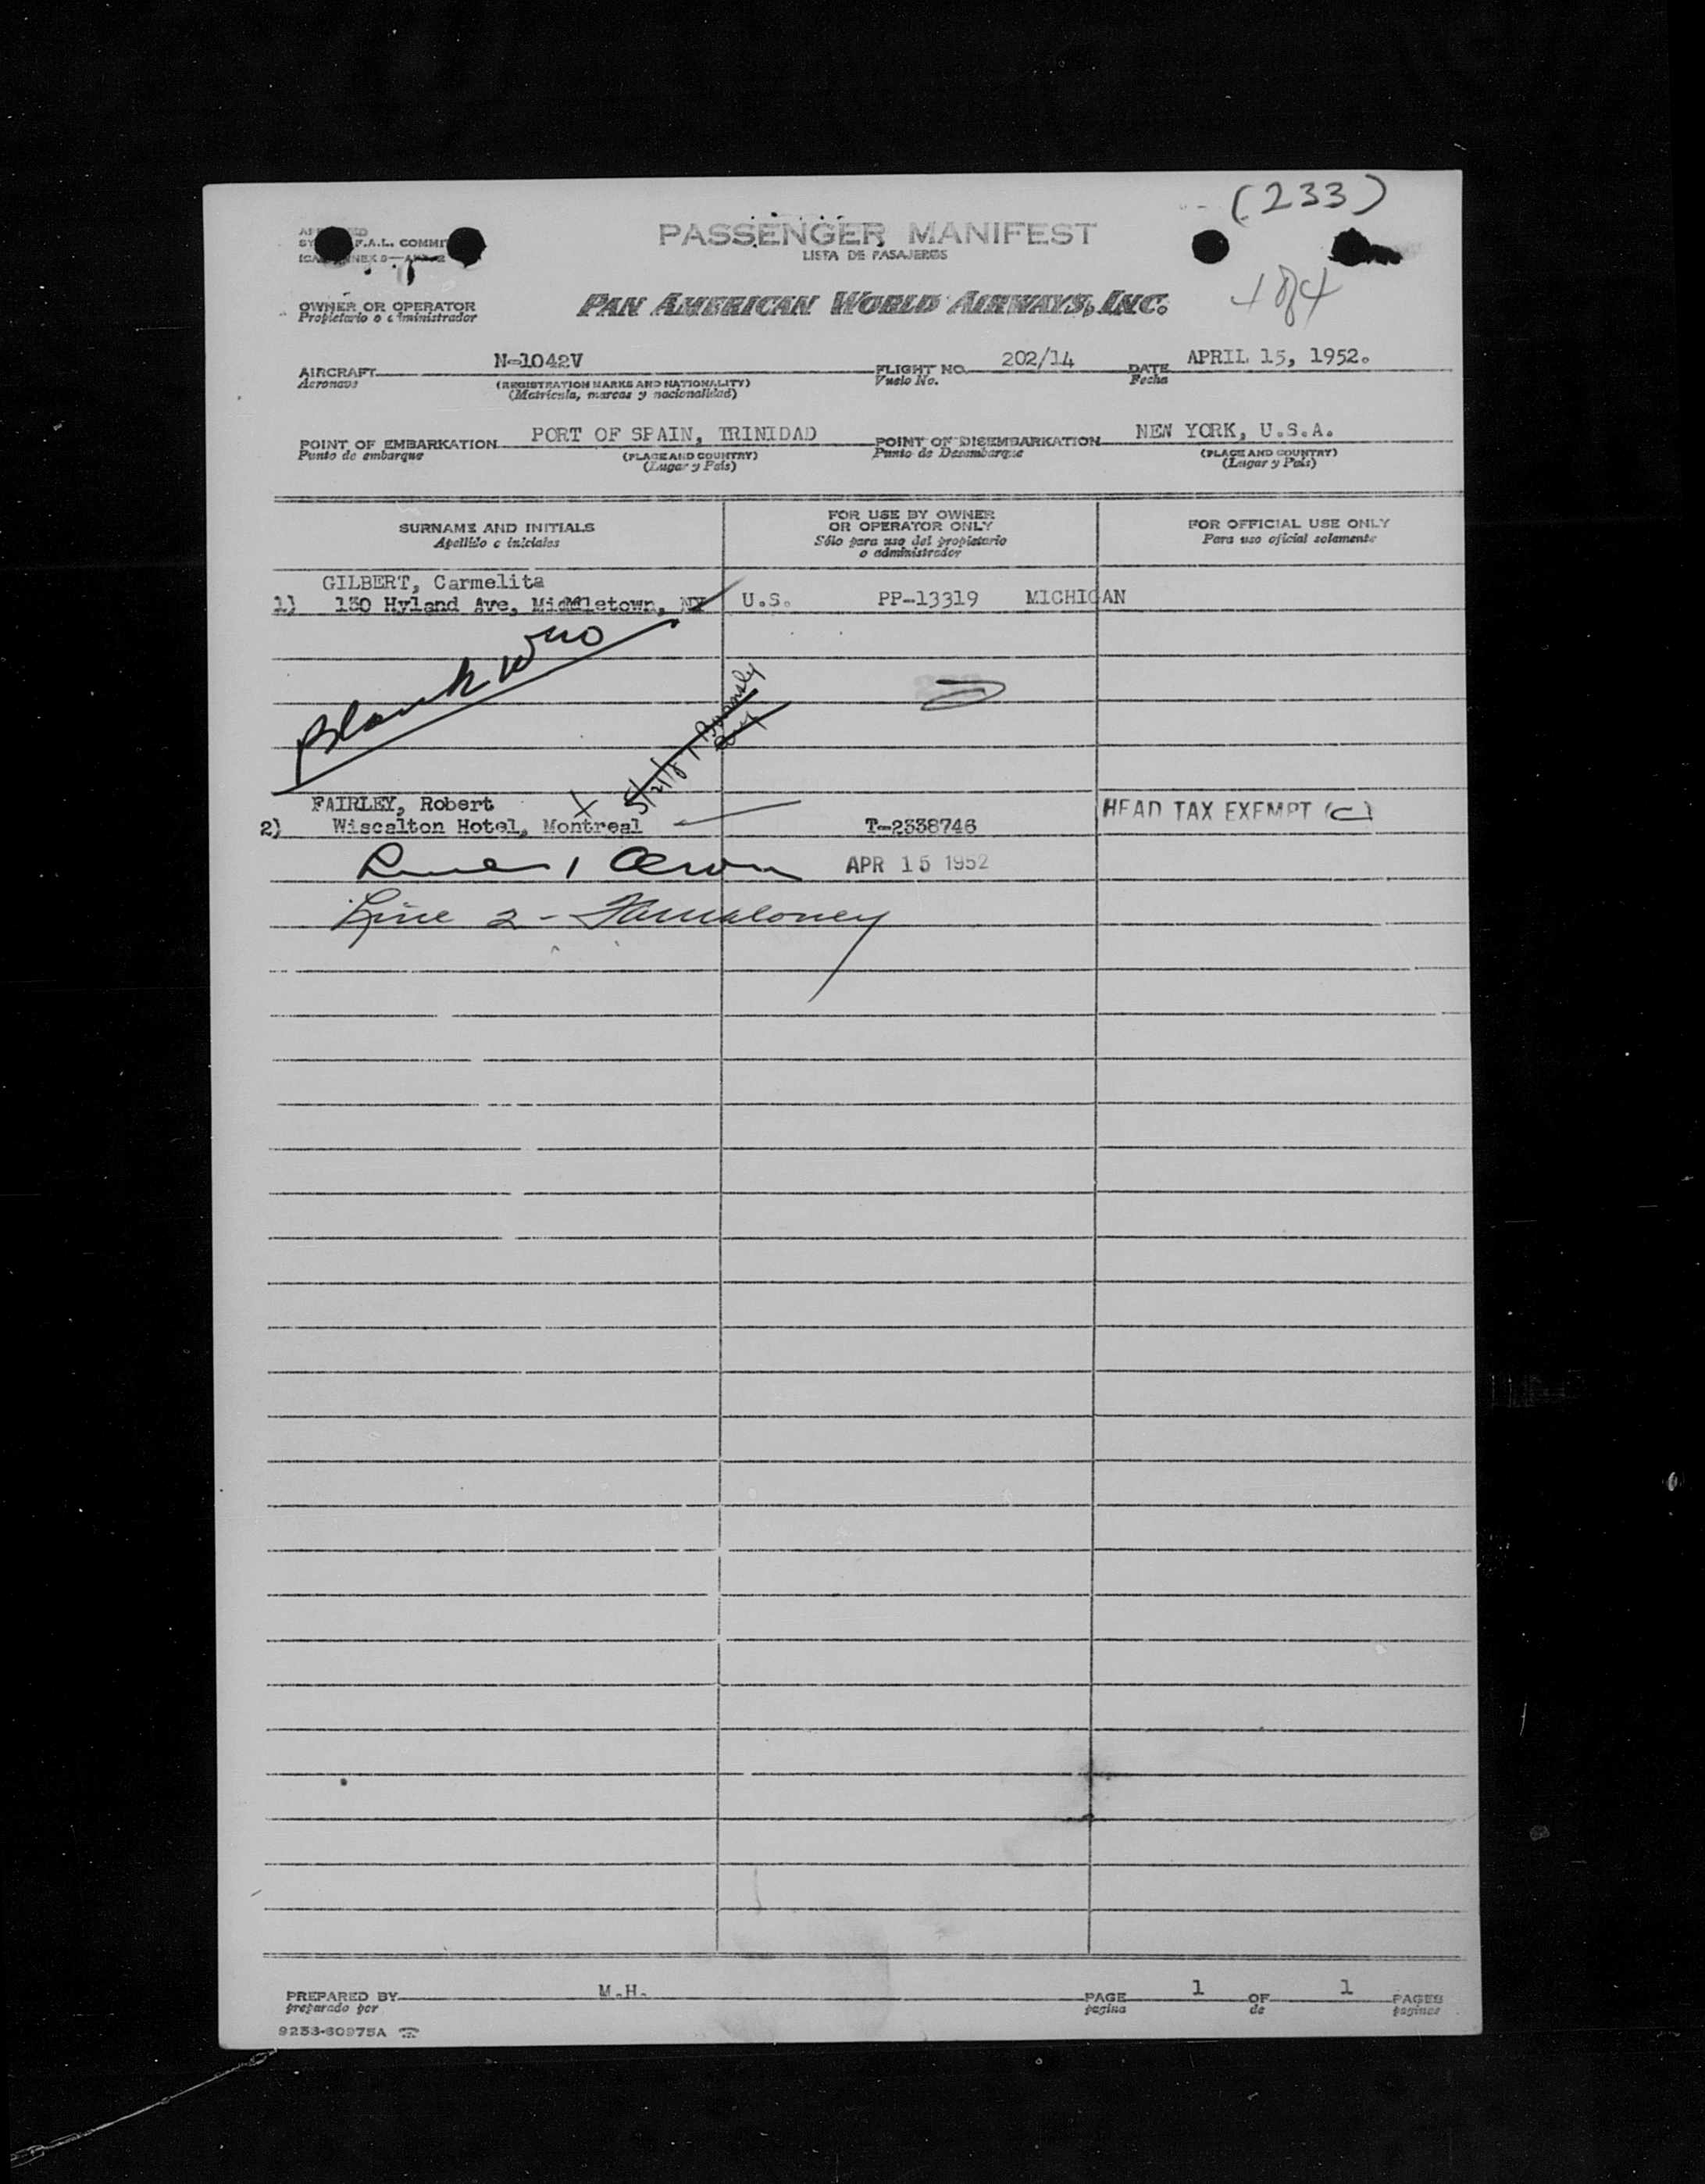 (233)
PASSENGER MANIFEST
LISTA DE PASAJEROS
F.A.L. COMMIT
184
OWNER OR OPERATOR
Propietario o administrador
PAN AMERICAN WORLD AIRWAYS, INC.
AIRCRAFT N-1042V FLIGHT NO. 202/14 DATE APRIL 15, 1952.
Aeronave (REGISTRATION MARKS AND NATIONALITY) Vuelo No. Fecha
(Matricula, marcas y nacionalidad)
POINT OF EMBARKATION PORT OF SPAIN, TRINIDAD POINT OF DISEMBARKATION NEW YORK, U.S.A.
Punto de embarque (PLACE AND COUNTRY) Punto de Desembarque (PLACE AND COUNTRY)
(Lugar y País) (Lugar y País)
SURNAME AND INITIALS
Apellido e iniciales
FOR USE BY OWNER
OR OPERATOR ONLY
Sólo para uso del propietario
o administrador
FOR OFFICIAL USE ONLY
Para uso oficial solamente
GILBERT, Carmelita
1) 130 Hyland Ave, Middletown, NY U.S. PP-13319 MICHIGAN
Blank
FAIRLEY, Robert
HEAD TAX EXEMPT (C)
2) Wiscalton Hotel, Montreal T-2338746
APR 15 1952
Line 2 -
PREPARED BY M.H. PAGE 1 OF 1 PAGES
preparado por pagina de paginas
9253-60975A